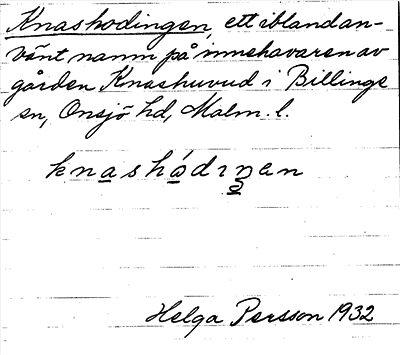 Knashodingen, ett iblandan-
vänt namn på innehavaren av
gården Knashuvud i Billinge
sn, Onsjö hd, Malm. l.
knashódıŋan
Helga Persson 1932